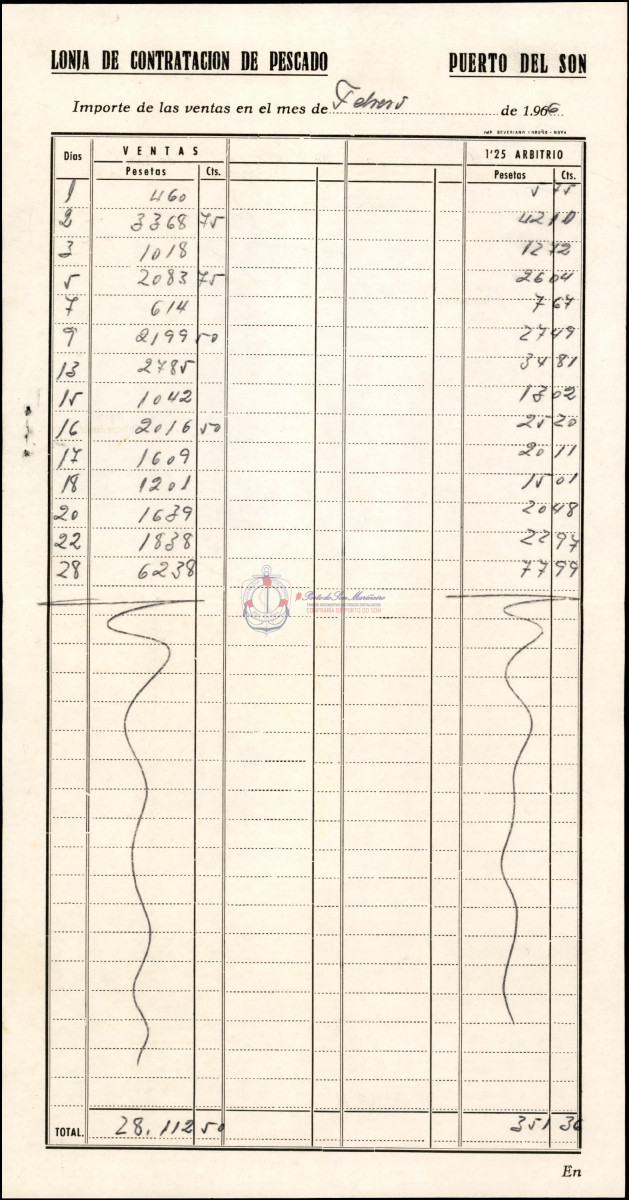 LONJA DE CONTRATACION DE PESCADO PUERTO DEL SON
Importe de las ventas en el mes de Febrero de 1.966
Días VENTAS 1'25 ARBITRIO
Pesetas Cts. Pesetas Cts.
1 460 5 75
2 3368 75 42 10
3 1018 12 72
5 2083 75 26 04
7 614 7 67
9 2199 50 27 49
13 2785 34 81
15 1042 13 02
16 2016 50 25 20
17 1609 20 11
18 1201 15 01
20 1639 20 48
22 1838 22 97
28 6238 77 99
Porto do Son Mariñeiro
CONFRARÍA DE PORTO DO SON
TOTAL. 28.112 50 351 36
En